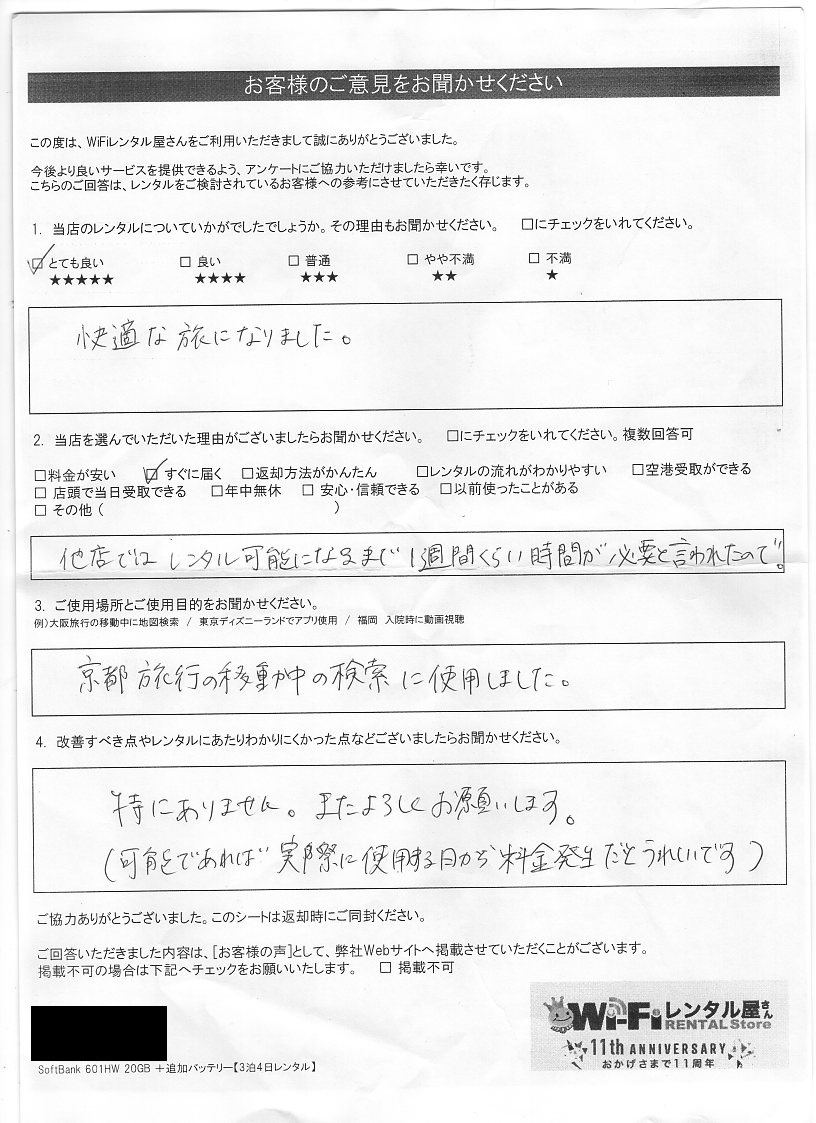 お客様のご意見をお聞かせください
この度は、WiFiレンタル屋さんをご利用いただきまして誠にありがとうございました。
今後より良いサービスを提供できるよう、アンケートにご協力いただけましたら幸いです。
こちらのご回答は、レンタルをご検討されているお客様への参考にさせていただきたく存じます。
1. 当店のレンタルについていかがでしたでしょうか。その理由もお聞かせください。 □にチェックをいれてください。
☑とても良い □ 良い □ 普通 □ やや不満 □ 不満
★★★★★ ★★★★ ★★★ ★★ ★
快適な旅になりました。
2. 当店を選んでいただいた理由がございましたらお聞かせください。 □にチェックをいれてください。複数回答可
□料金が安い ☑すぐに届く □返却方法がかんたん □レンタルの流れがわかりやすい □空港受取ができる
□ 店頭で当日受取できる □年中無休 □ 安心・信頼できる □以前使ったことがある
□ その他（ ）
他店ではレンタル可能になるまで1週間くらい時間が必要と言われたので。
3. ご使用場所とご使用目的をお聞かせください。
例）大阪旅行の移動中に地図検索 / 東京ディズニーランドでアプリ使用 / 福岡 入院時に動画視聴
京都旅行の移動中の検索に使用しました。
4. 改善すべき点やレンタルにあたりわかりにくかった点などございましたらお聞かせください。
特にありません。またよろしくお願いします。
（可能であれば実際に使用する日から料金発生だとうれしいです）
ご協力ありがとうございました。このシートは返却時にご同封ください。
ご回答いただきました内容は、[お客様の声]として、弊社Webサイトへ掲載させていただくことがございます。
掲載不可の場合は下記へチェックをお願いいたします。 □ 掲載不可
Wi-Fiレンタル屋さん
RENTAL Store
11th ANNIVERSARY
おかげさまで11周年
SoftBank 601HW 20GB ＋追加バッテリー【3泊4日レンタル】